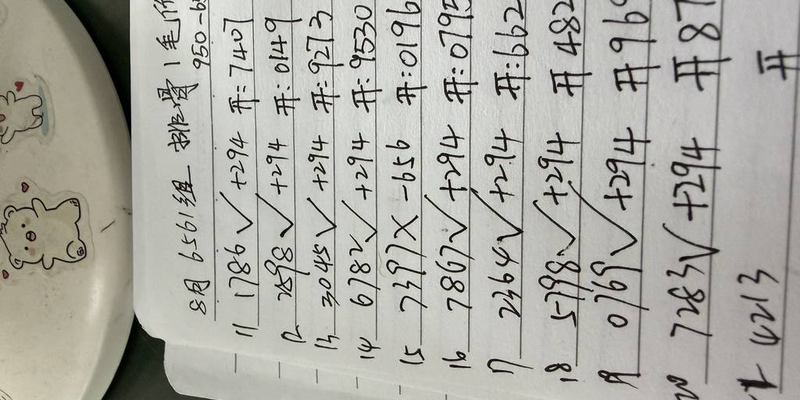 8月 6561组 排骨1毛
950-656
11 1786✓+294 开:7407
12 2898✓+294 开:0149
13 3045✓+294 开:9273
14 6782✓+294 开:9530
15 7397×-656 开:0196
16 7867✓+294 开:0795
17 2364✓+294 开:662
18 5798✓+294 开482
19 0769✓+294 开969
20 7283✓+294 开87
21 4213 开